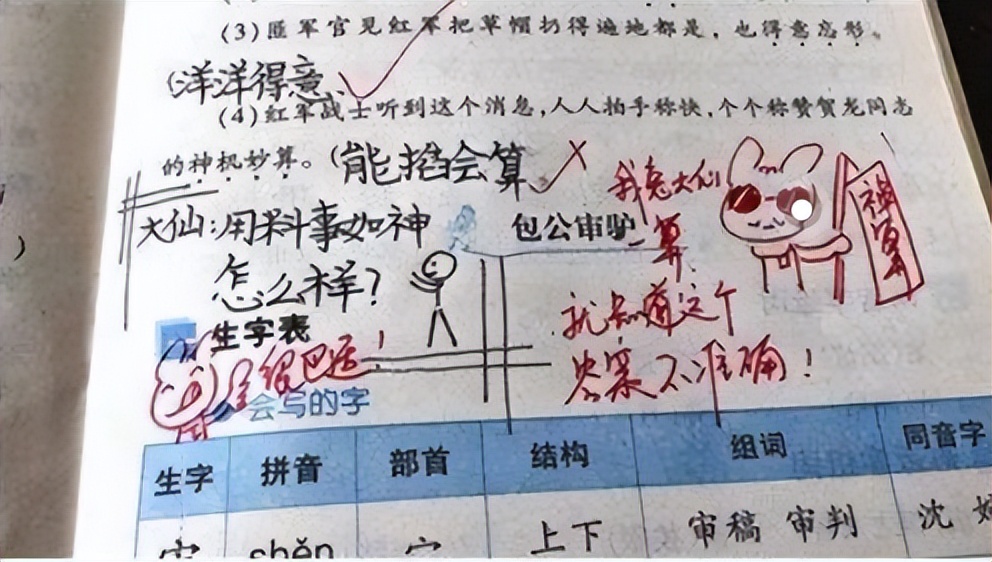 (3)匪军官见红军把草帽扔得遍地都是，也得意忘形。
(洋洋得意)
(4)红军战士听到这个消息，人人拍手称快，个个称赞贺龙同志
的神机妙算。(能掐会算
我兔大仙
一算
就知道这个
答案不准确！
大仙:用料事如神
怎么样?
包公审驴
生字表
很巴适！
会写的字
生字 拼音 部首 结构 组词 同音字
shěn 上下 审稿 审判 沈